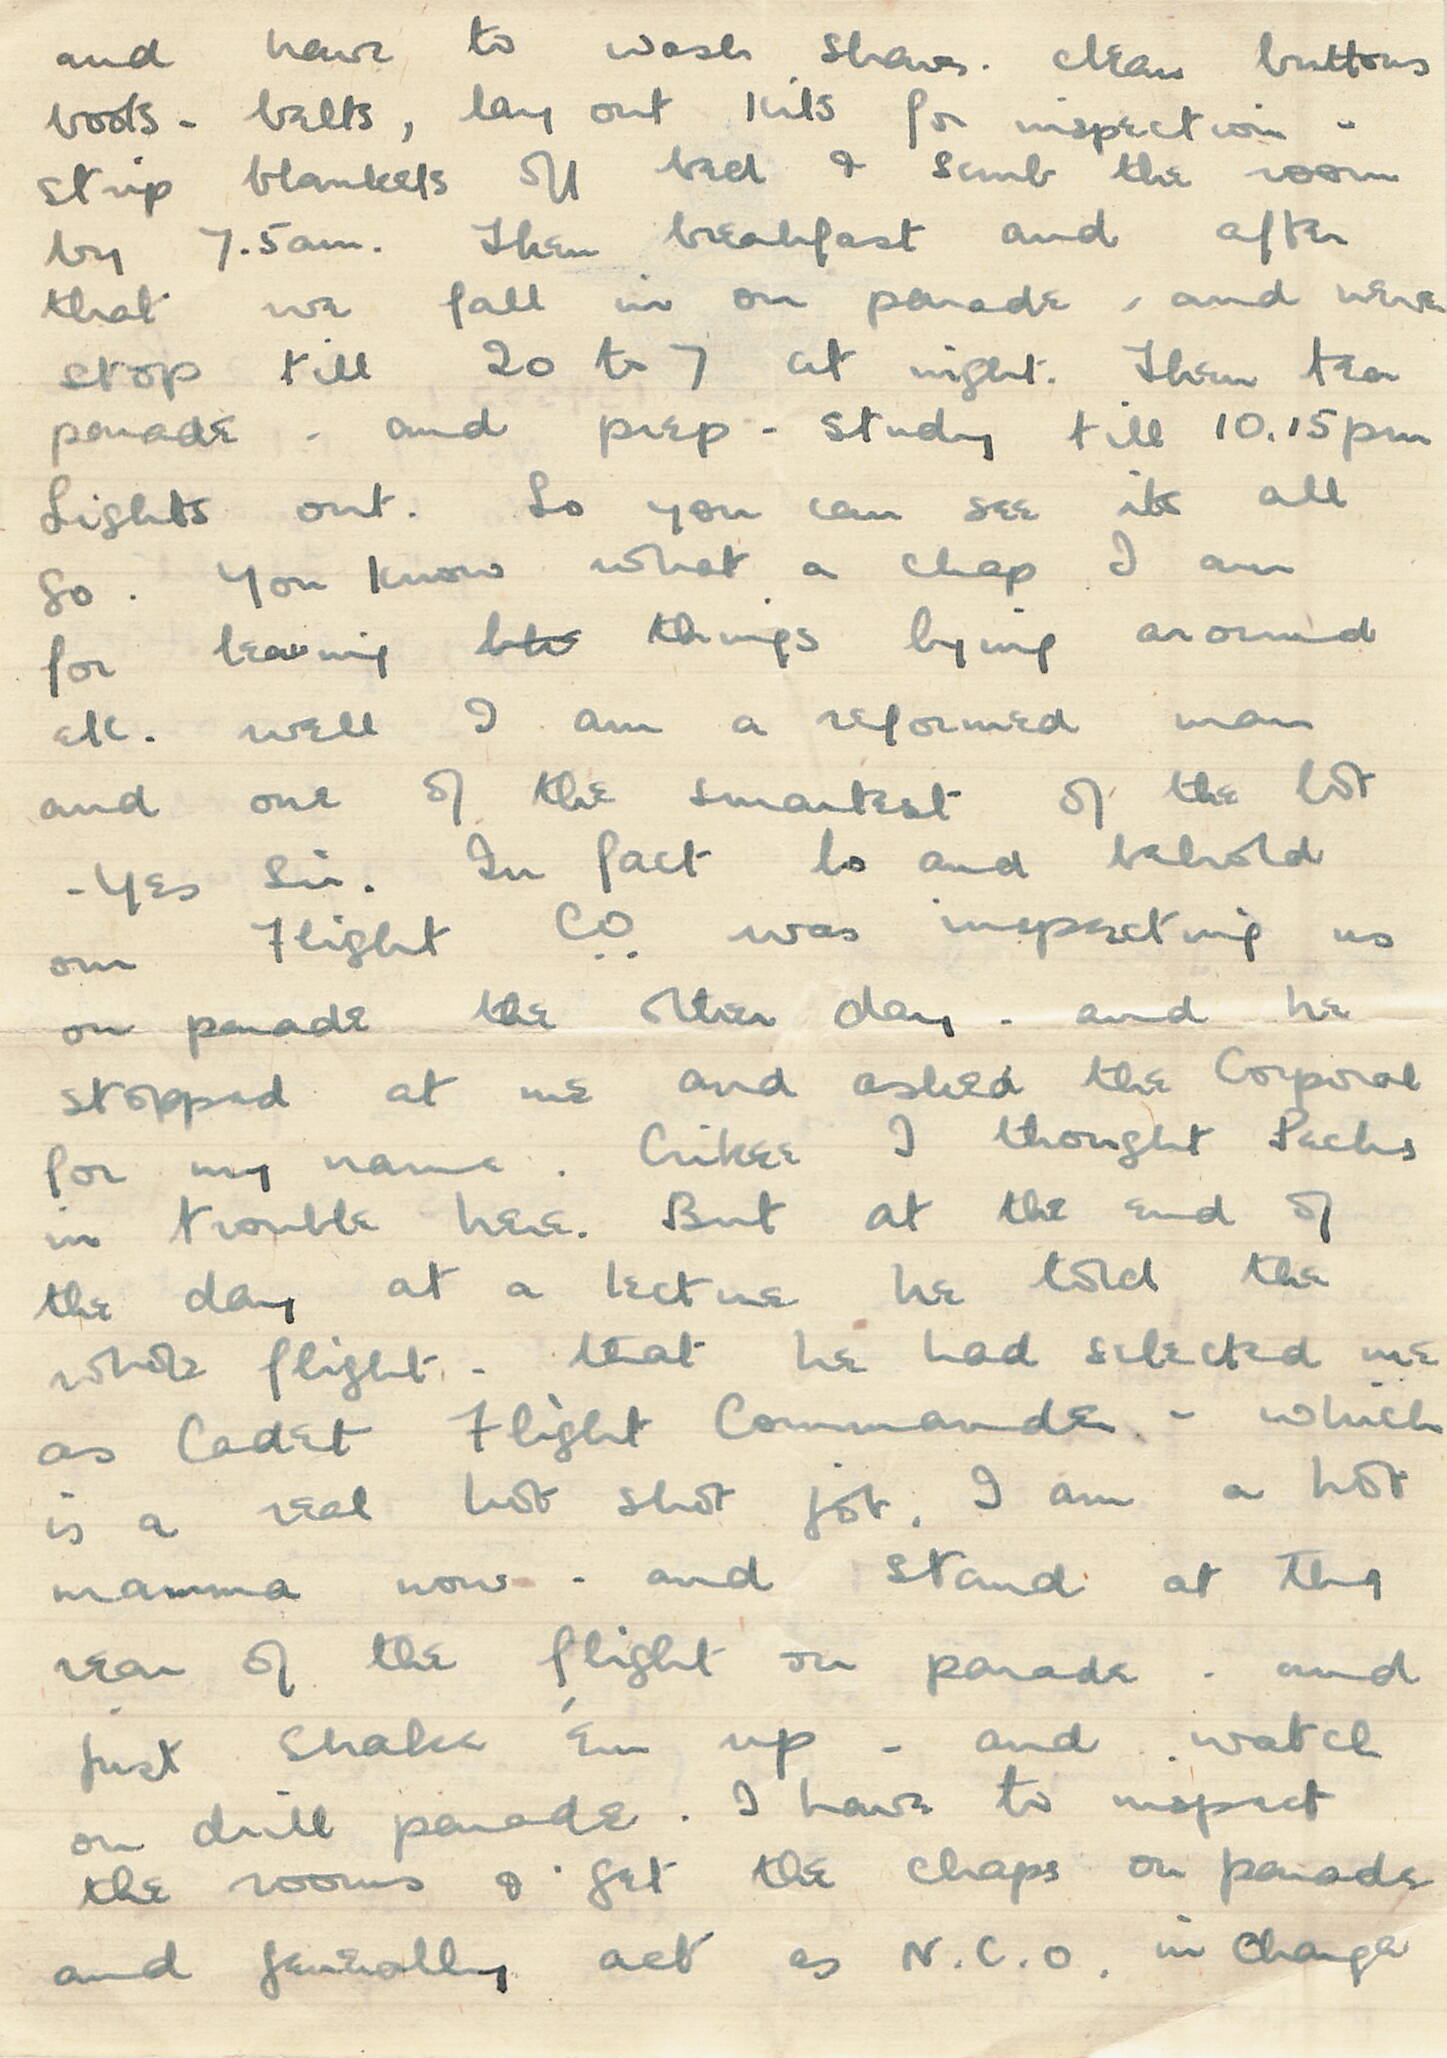 and have to wash shave. clean buttons
boots - belts, lay out kits for inspection -
strip blankets off bed & scrub the room
by 7.5am. Then breakfast and after
that we fall in on parade, and were
stop till 20 to 7 at night. Then tea
parade - and prep - study till 10.15pm
Lights out. So you can see its all
go. You know what a chap I am
for leaving things lying around
etc. well I am a reformed man
and one of the smartest of the lot
- Yes Sir. In fact lo and behold
our Flight C.O. was inspecting us
on parade the other day - and he
stopped at me and asked the Corporal
for my name. Crikee I thought Pecks
in trouble here. But at the end of
the day at a lecture he told the
whole flight - that he had selected me
as Cadet Flight Commander - which
is a real hot shot job. I am a hot
mamma now - and stand at the
rear of the flight on parade - and
just shake 'em up - and watch
on drill parade. I have to inspect
the rooms & get the chaps on parade
and generally act as N.C.O. in charge